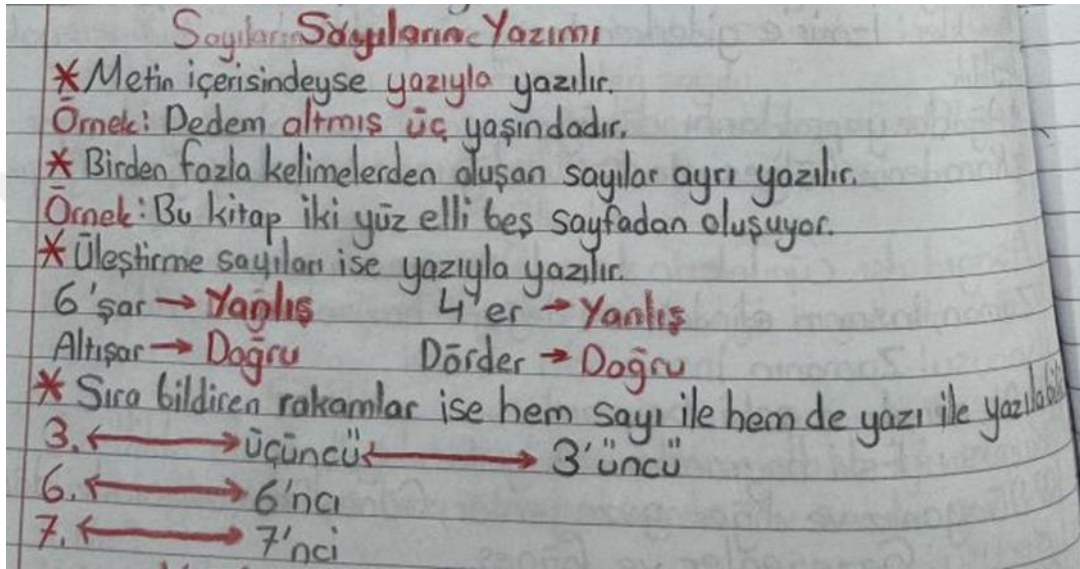 Sayıların Sayıların Yazımı
* Metin içerisindeyse yazıyla yazılır.
Örnek: Dedem altmış üç yaşındadır.
* Birden fazla kelimelerden oluşan sayılar ayrı yazılır.
Örnek: Bu kitap iki yüz elli beş sayfadan oluşuyor.
* Üleştirme sayıları ise yazıyla yazılır.
6'şar → Yanlış 4'er → Yanlış
Altışar → Doğru Dörder → Doğru
* Sıra bildiren rakamlar ise hem sayı ile hem de yazı ile yazılabilir
3. ↔ üçüncü ↔ 3'üncü
6. ↔ 6'ncı
7. ↔ 7'nci